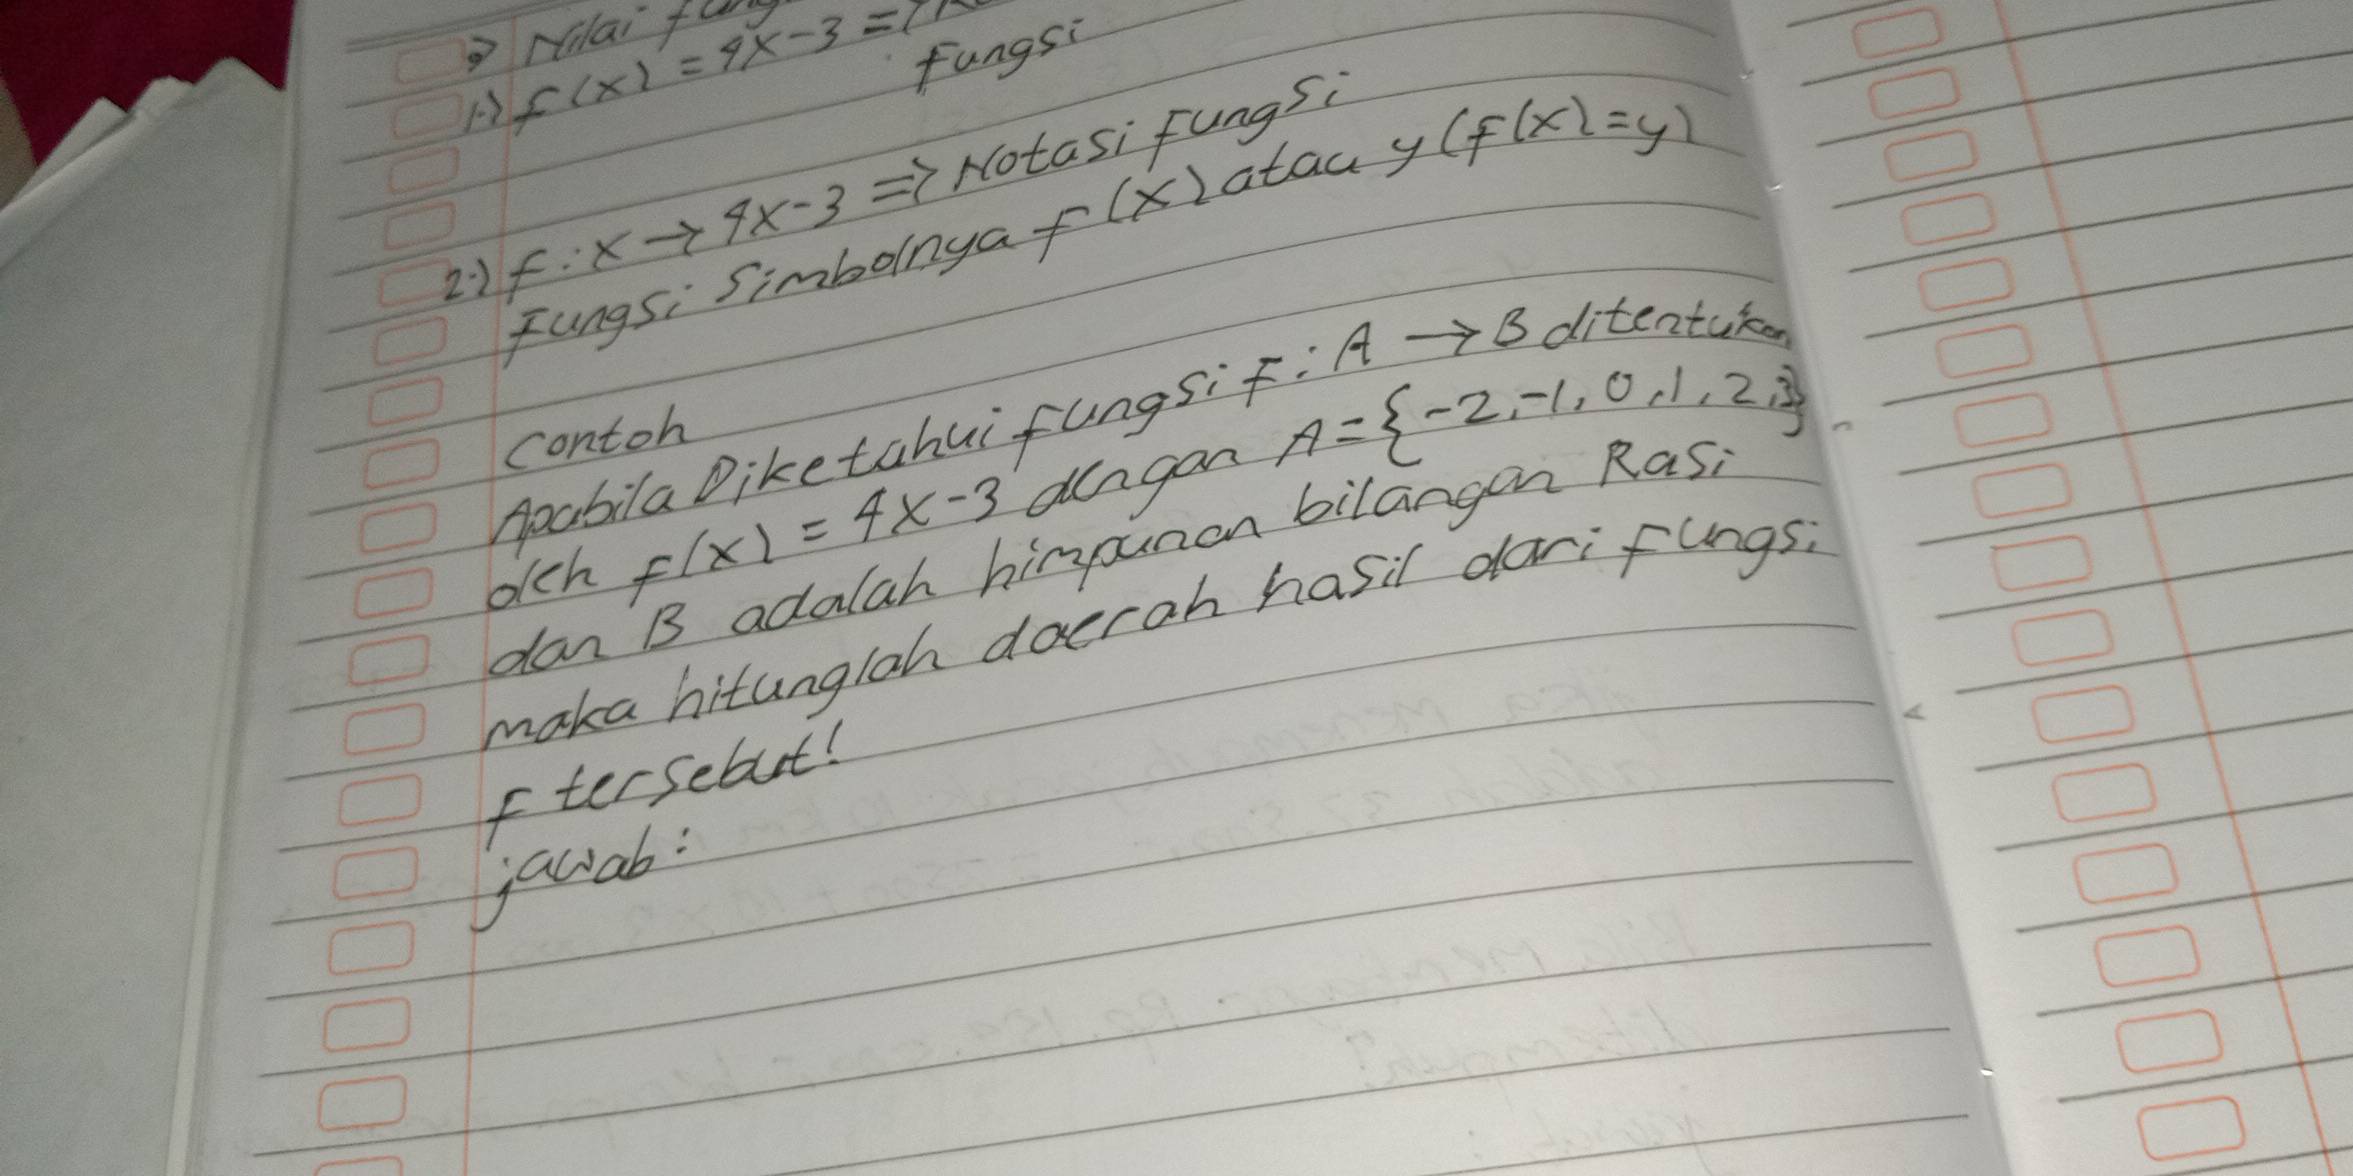 ⇒ Nilai fung
1.) f(x) = 4x-3 ⇒
Fungsi
2.) f : x → 4x-3 ⇒ Notasi fungsi
Fungsi Simbolnya f(x) atau y (f(x) = y)
Contoh
Apabila Diketahui fungsi F : A → B ditentukan
oleh f(x) = 4x-3 dengan A = {-2, -1, 0, 1, 2, 3}
dan B adalah himpunan bilangan Rasi
maka hitunglah daerah hasil dari fungsi
F tersebut!
jawab :